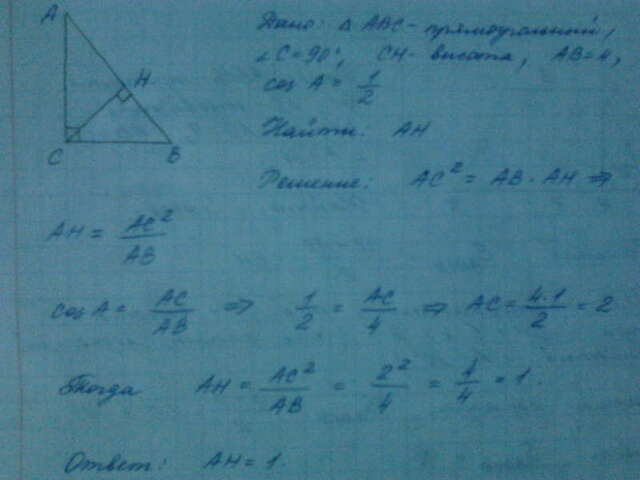 A
H
C
B
Дано: △ ABC - прямоугольный,
∠C = 90°, CH - высота, AB = 4,
cos A = 1/2
Найти: AH
Решение: AC² = AB · AH ⇒
AH = AC²/AB
cos A = AC/AB ⇒ 1/2 = AC/4 ⇒ AC = 4·1/2 = 2
Тогда AH = AC²/AB = 2²/4 = 4/4 = 1.
Ответ: AH = 1.